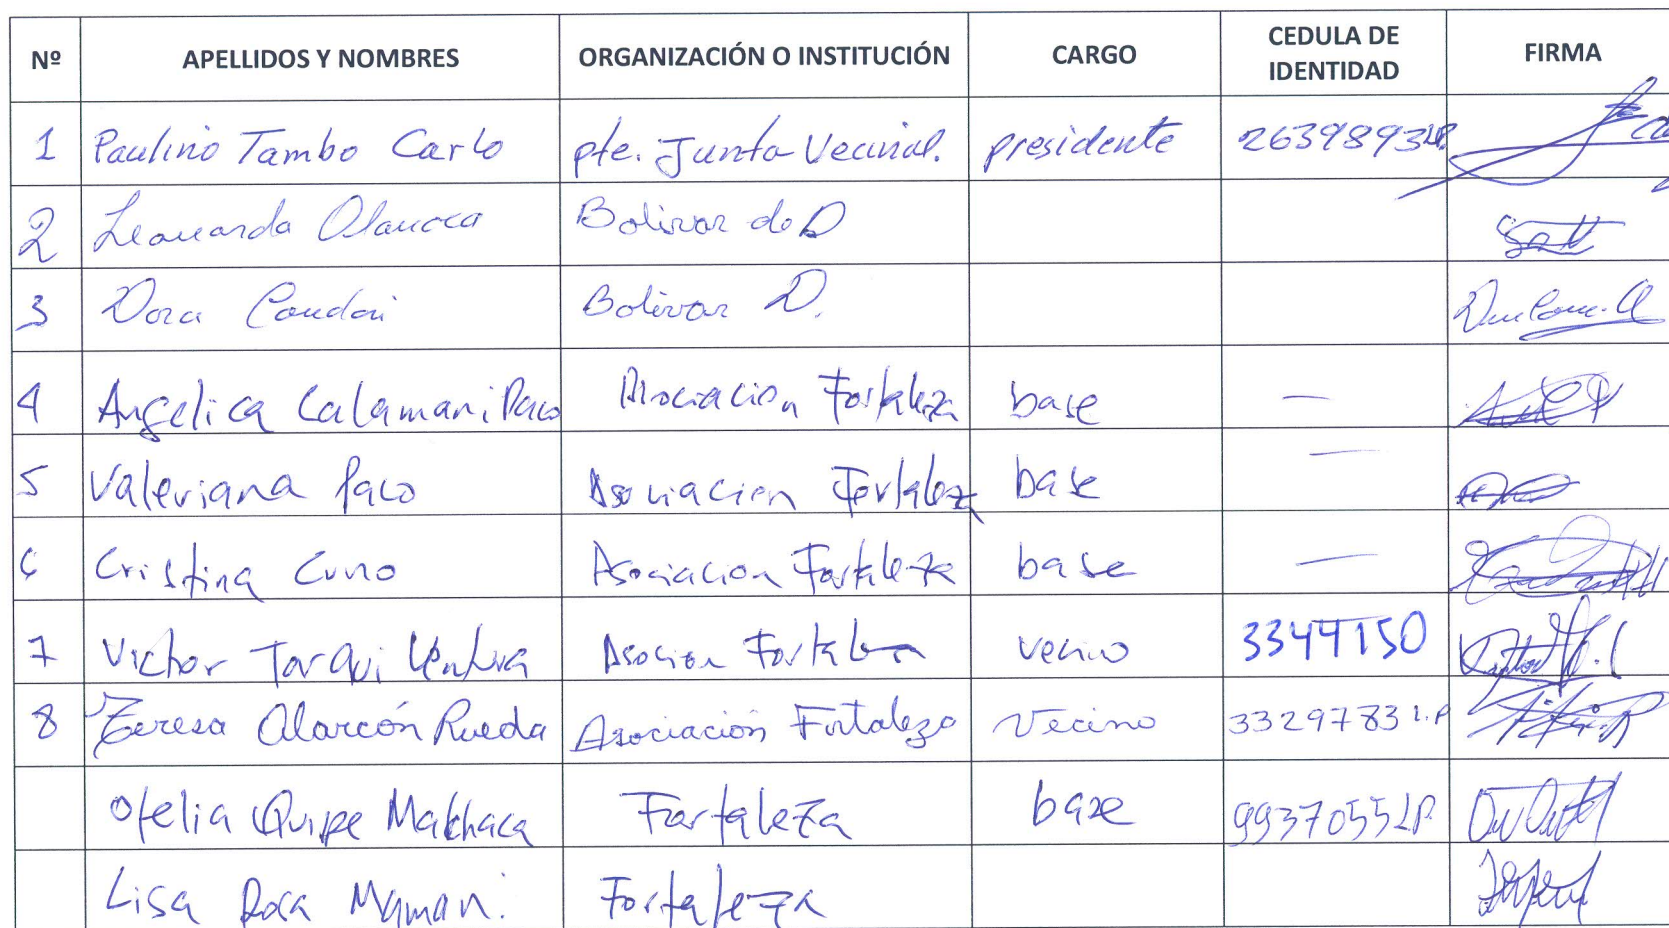 Nº APELLIDOS Y NOMBRES ORGANIZACIÓN O INSTITUCIÓN CARGO CEDULA DE IDENTIDAD FIRMA
1 Paulino Tambo Carlo pte. Junta Vecinal. presidente 2639893 LP.
2 Leonarda Bolivar de D
3 Dora Condori Bolivar D.
4 Angelica Calamani Paco Asociacion Fortaleza base —
5 Valeriana Paco Asociacion Fortaleza base —
6 Cristina Cuno Asociacion Fortaleza base —
7 Victor Tarqui Ventura Asocion Fortaleza vecino 3344150
8 Teresa Alarcón Rueda Asociación Fortaleza Vecino 3329783 L.P
Ofelia Quispe Makhaca Fortaleza base 9937055 LP.
Lisa Rosa Mamani. Fortaleza